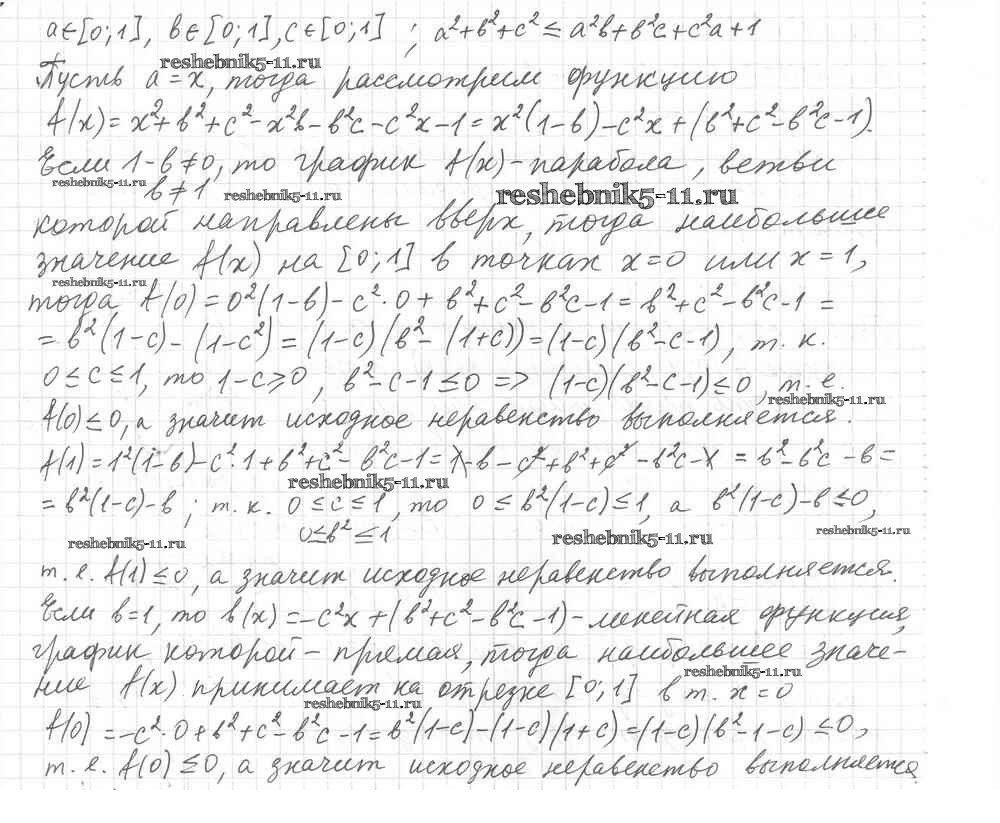 a∈[0;1], b∈[0;1], c∈[0;1] ; a²+b²+c² ≤ a²b+b²c+c²a+1
reshebnik5-11.ru
Пусть a=x, тогда рассмотрим функцию
f(x)=x²+b²+c²-x²b-b²c-c²x-1=x²(1-b)-c²x+(b²+c²-b²c-1).
Если 1-b≠0, то график f(x)-парабола, ветви
reshebnik5-11.ru b≠1 reshebnik5-11.ru reshebnik5-11.ru
которой направлены вверх, тогда наибольшее
значение f(x) на [0;1] в точках x=0 или x=1,
reshebnik5-11.ru
тогда f(0)=0²(1-b)-c²·0+b²+c²-b²c-1=b²+c²-b²c-1=
=b²(1-c)-(1-c²)=(1-c)(b²-(1+c))=(1-c)(b²-c-1), т.к.
0≤c≤1, то 1-c≥0, b²-c-1≤0 => (1-c)(b²-c-1)≤0, т.е.
reshebnik5-11.ru
f(0)≤0, а значит исходное неравенство выполняется.
f(1)=1²(1-b)-c²·1+b²+c²-b²c-1=1-b-c²+b²+c²-b²c-1=b²-b²c-b=
reshebnik5-11.ru
=b²(1-c)-b; т.к. 0≤c≤1, то 0≤b²(1-c)≤1, а b²(1-c)-b≤0,
0≤b²≤1
reshebnik5-11.ru reshebnik5-11.ru reshebnik5-11.ru
т.е. f(1)≤0, а значит исходное неравенство выполняется.
Если b=1, то b(x)=-c²x+(b²+c²-b²c-1)-линейная функция,
график которой-прямая, тогда наибольшее значе-
reshebnik5-11.ru
ние f(x) принимает на отрезке [0;1] в т. x=0
reshebnik5-11.ru
f(0)=-c²·0+b²+c²-b²c-1=b²(1-c)-(1-c)(1+c)=(1-c)(b²-1-c)≤0,
т.е. f(0)≤0, а значит исходное неравенство выполняется.